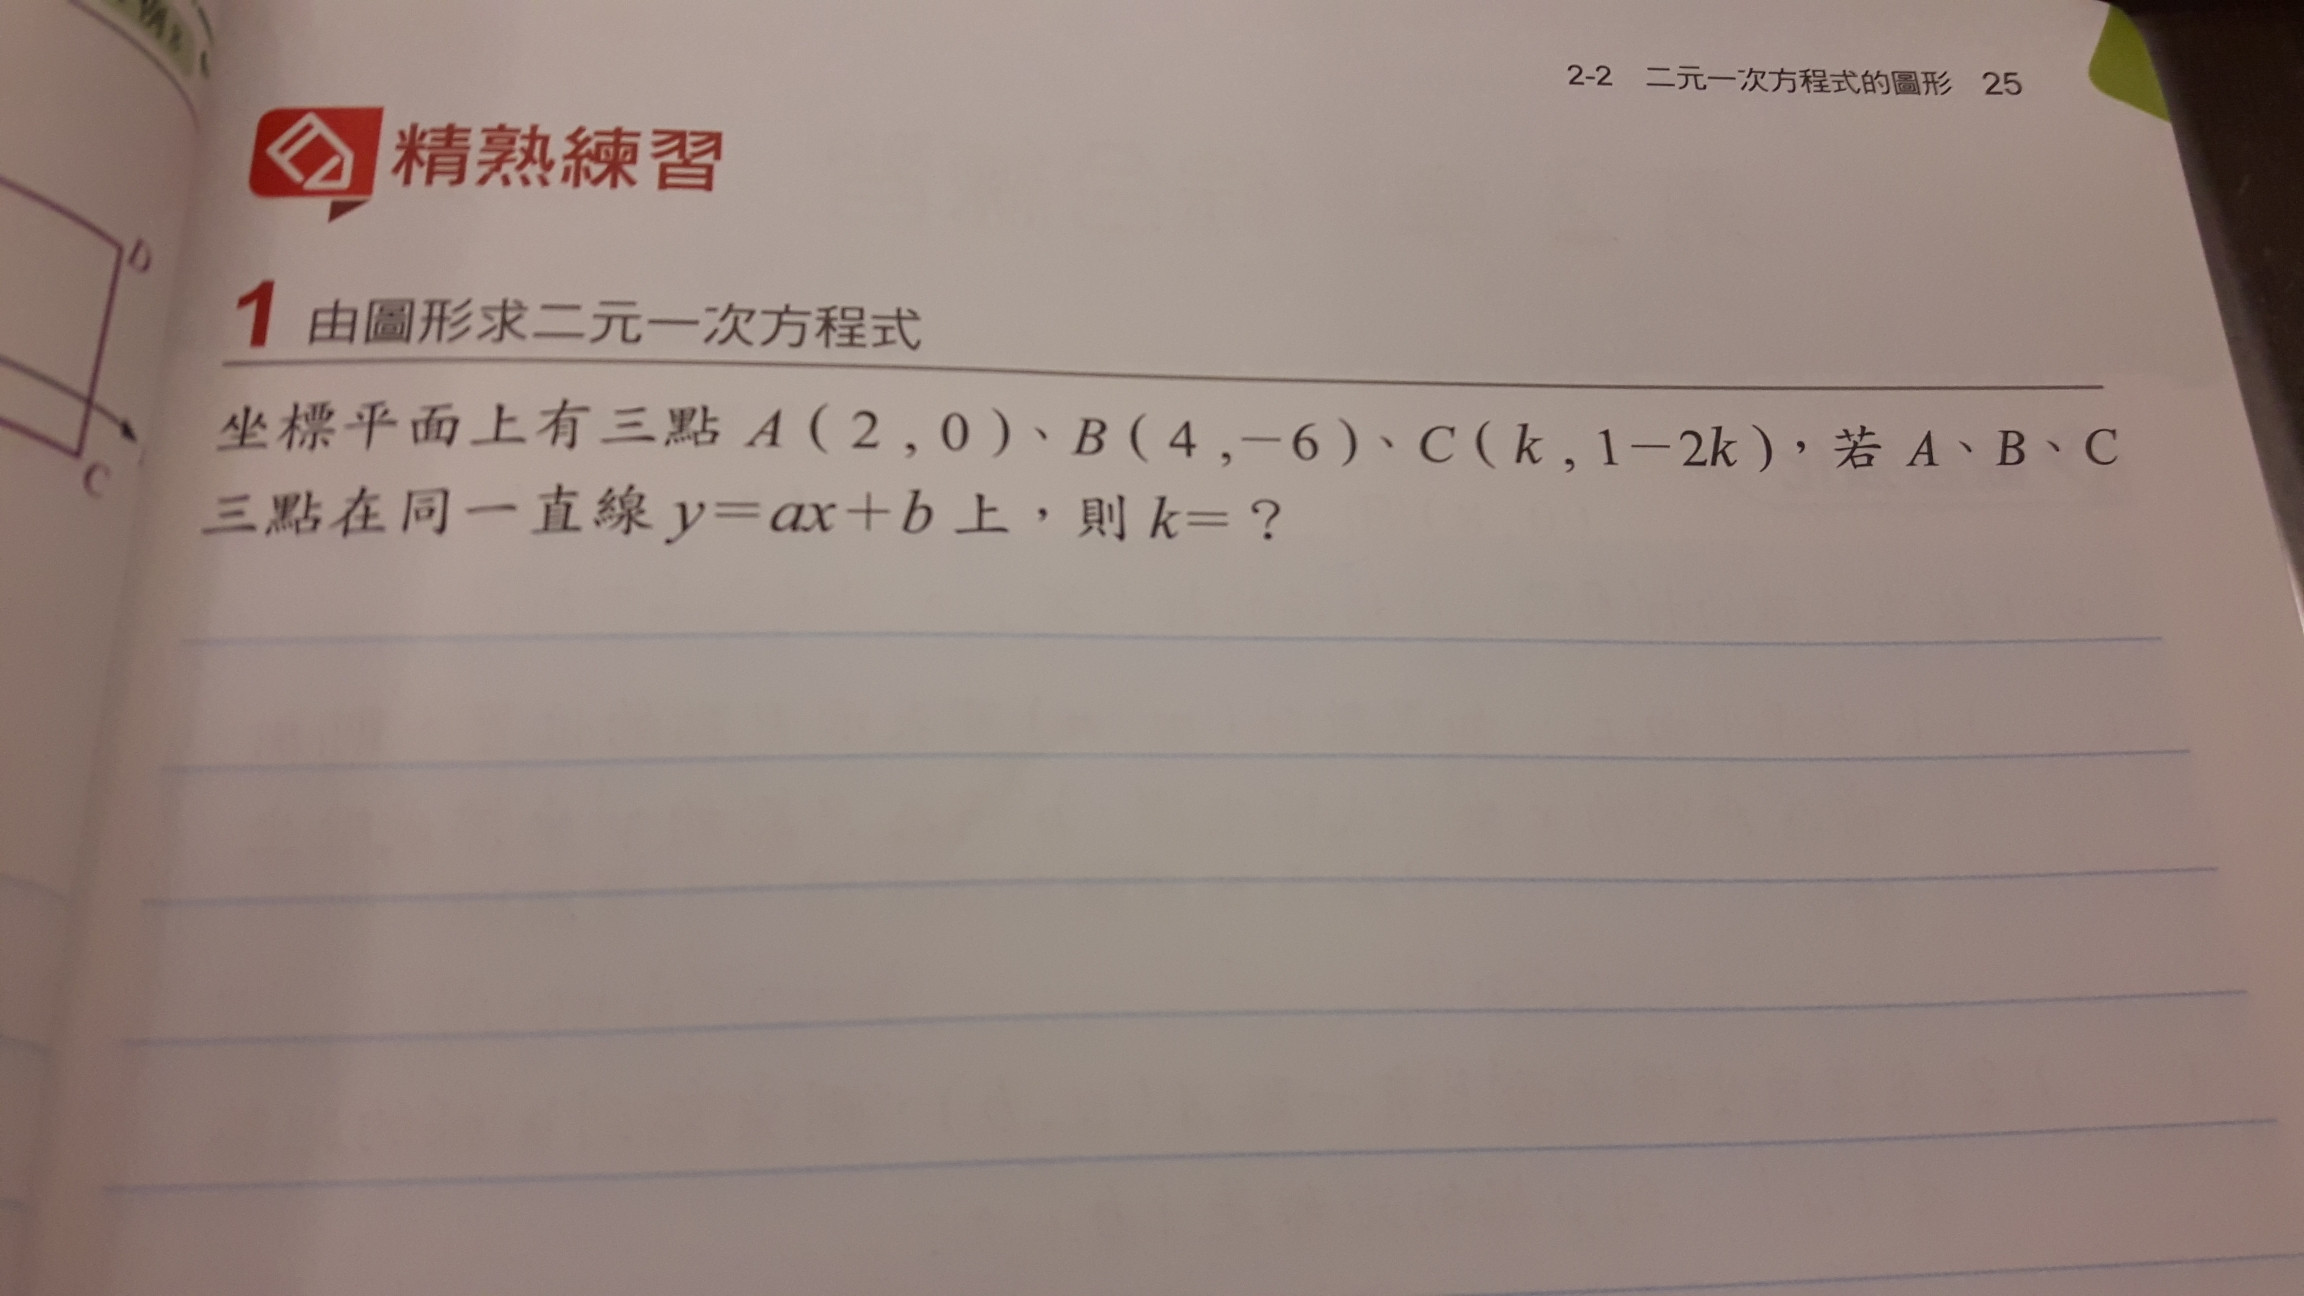 2-2 二元一次方程式的圖形 25
精熟練習
1 由圖形求二元一次方程式
坐標平面上有三點 A(2,0)、B(4,-6)、C(k,1-2k),若 A、B、C
三點在同一直線 y=ax+b 上,則 k=?
D
C